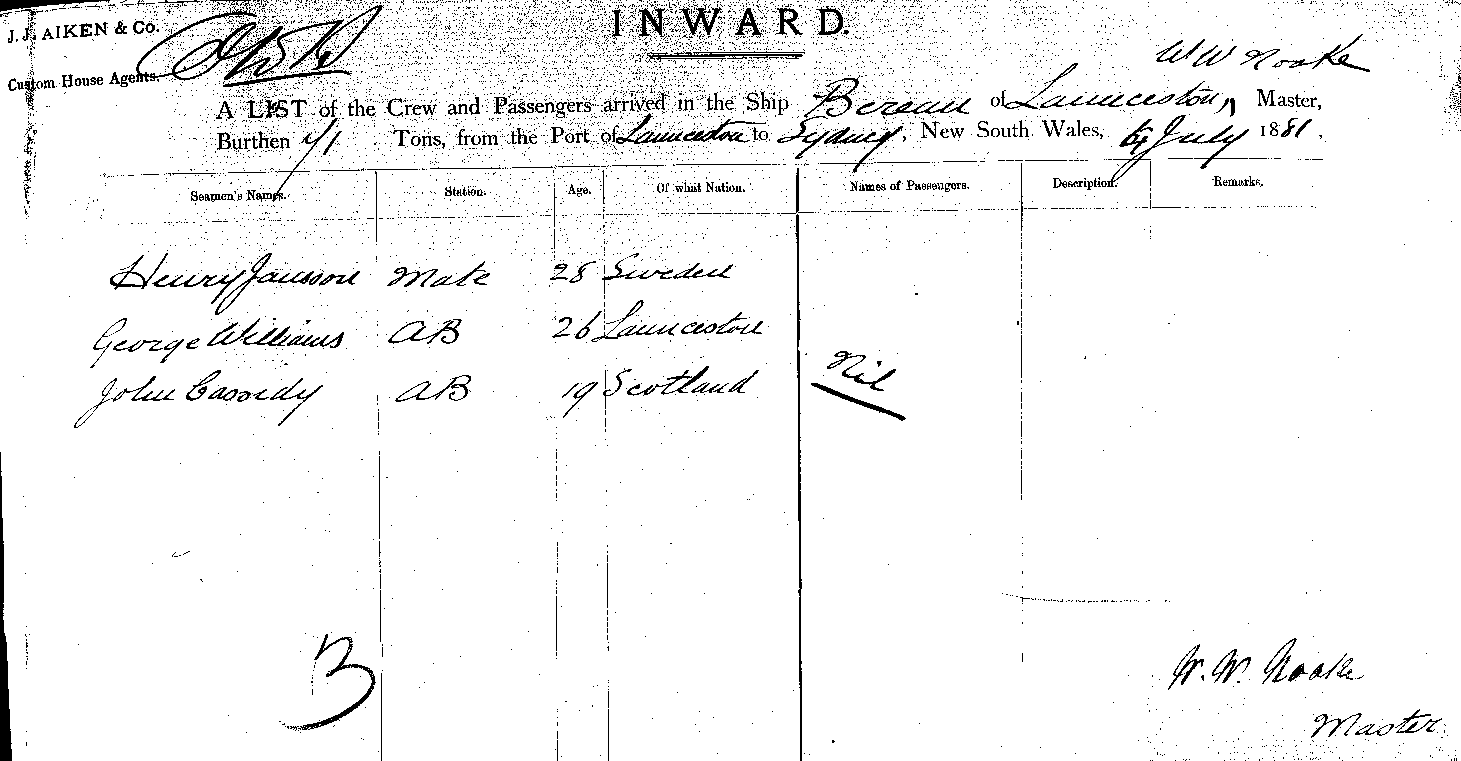 J. J. AIKEN & Co.
Custom House Agents.
INWARD.
W W Noake
A LIST of the Crew and Passengers arrived in the Ship Bereau of Launceston, Master,
Burthen Tons, from the Port of Launceston to Sydney. New South Wales, July 1881.
Seamen's Names. Station. Age. Of what Nation. Names of Passengers. Description. Remarks.
Henry Jansson Mate 28 Sweden
George Williams AB 26 Launceston
John Cassidy AB 19 Scotland Nil
W. W. Noake
Master